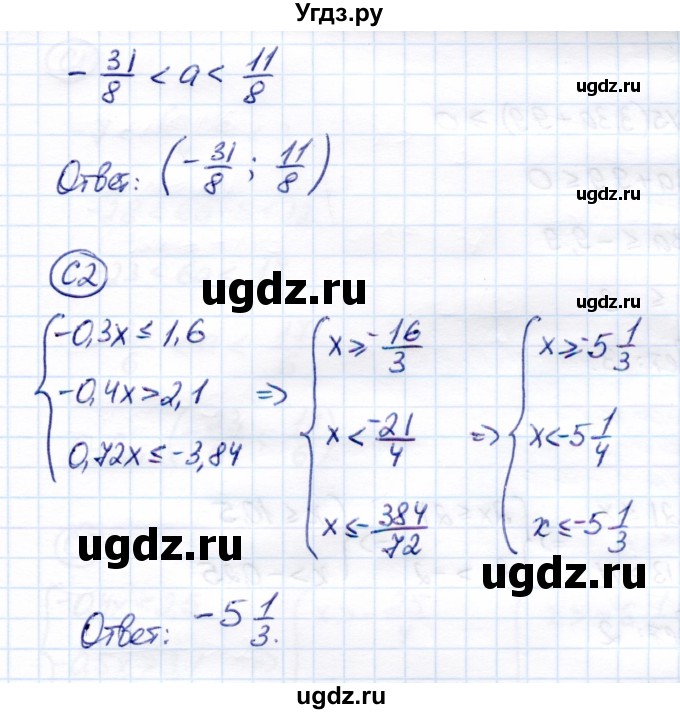 Угдз.ру
- 31/8 < a < 11/8
ugdz.ru
Ответ: (- 31/8 ; 11/8)
ugdz.ru
C2
ugdz.ru
ugdz.ru
{ -0,3x ≤ 1,6
-0,4x > 2,1
0,72x ≤ -3,84
=> { x ≥ -16/3
x < -21/4
x ≤ - 384/72
=> { x ≥ -5 1/3
x < -5 1/4
x ≤ -5 1/3
ugdz.ru
ugdz.ru
Ответ: -5 1/3.
ugdz.ru
ugdz.ru